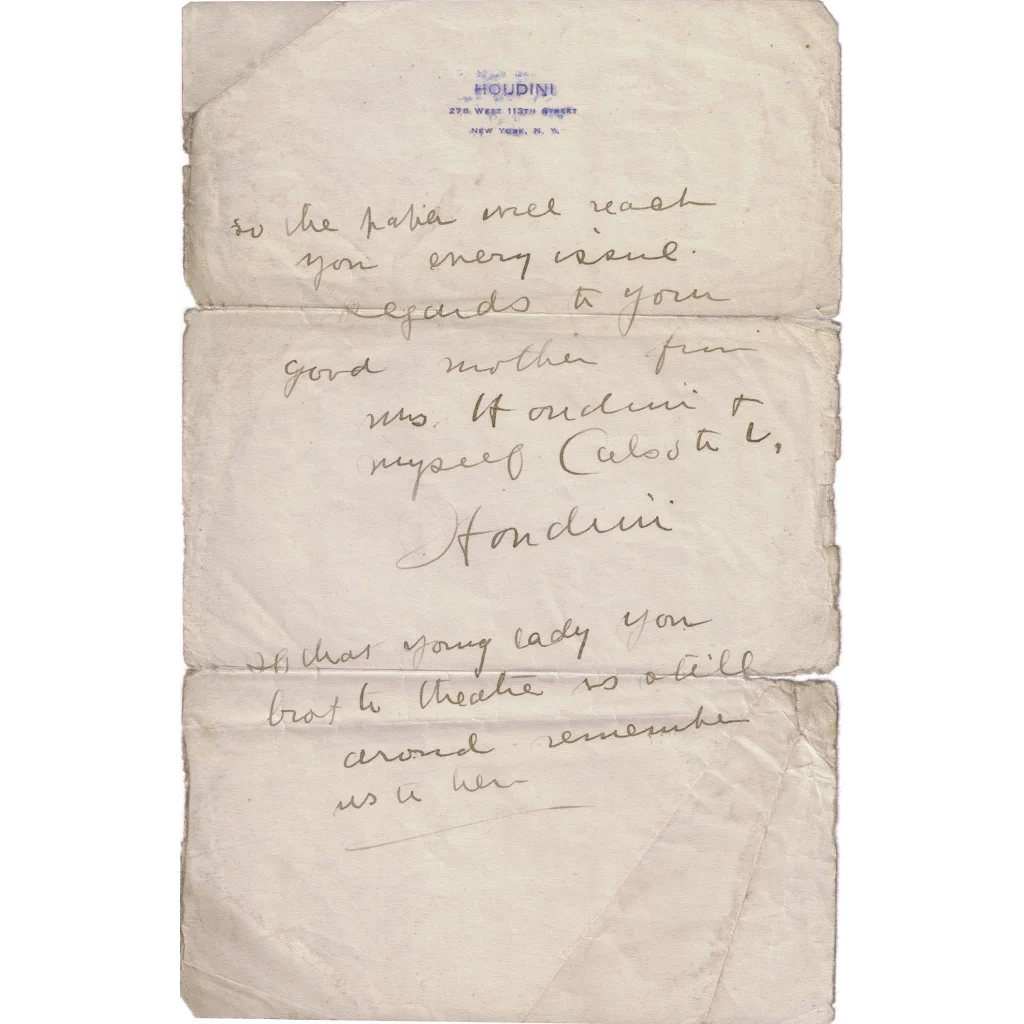 HOUDINI
278 WEST 113TH STREET
NEW YORK, N. Y.
so the paper will reach
you every issue.
regards to your
good mother from
Mrs. Houdini &
myself (also to U,
Houdini
If that young lady you
brot to theatre is still
around remember
us to her